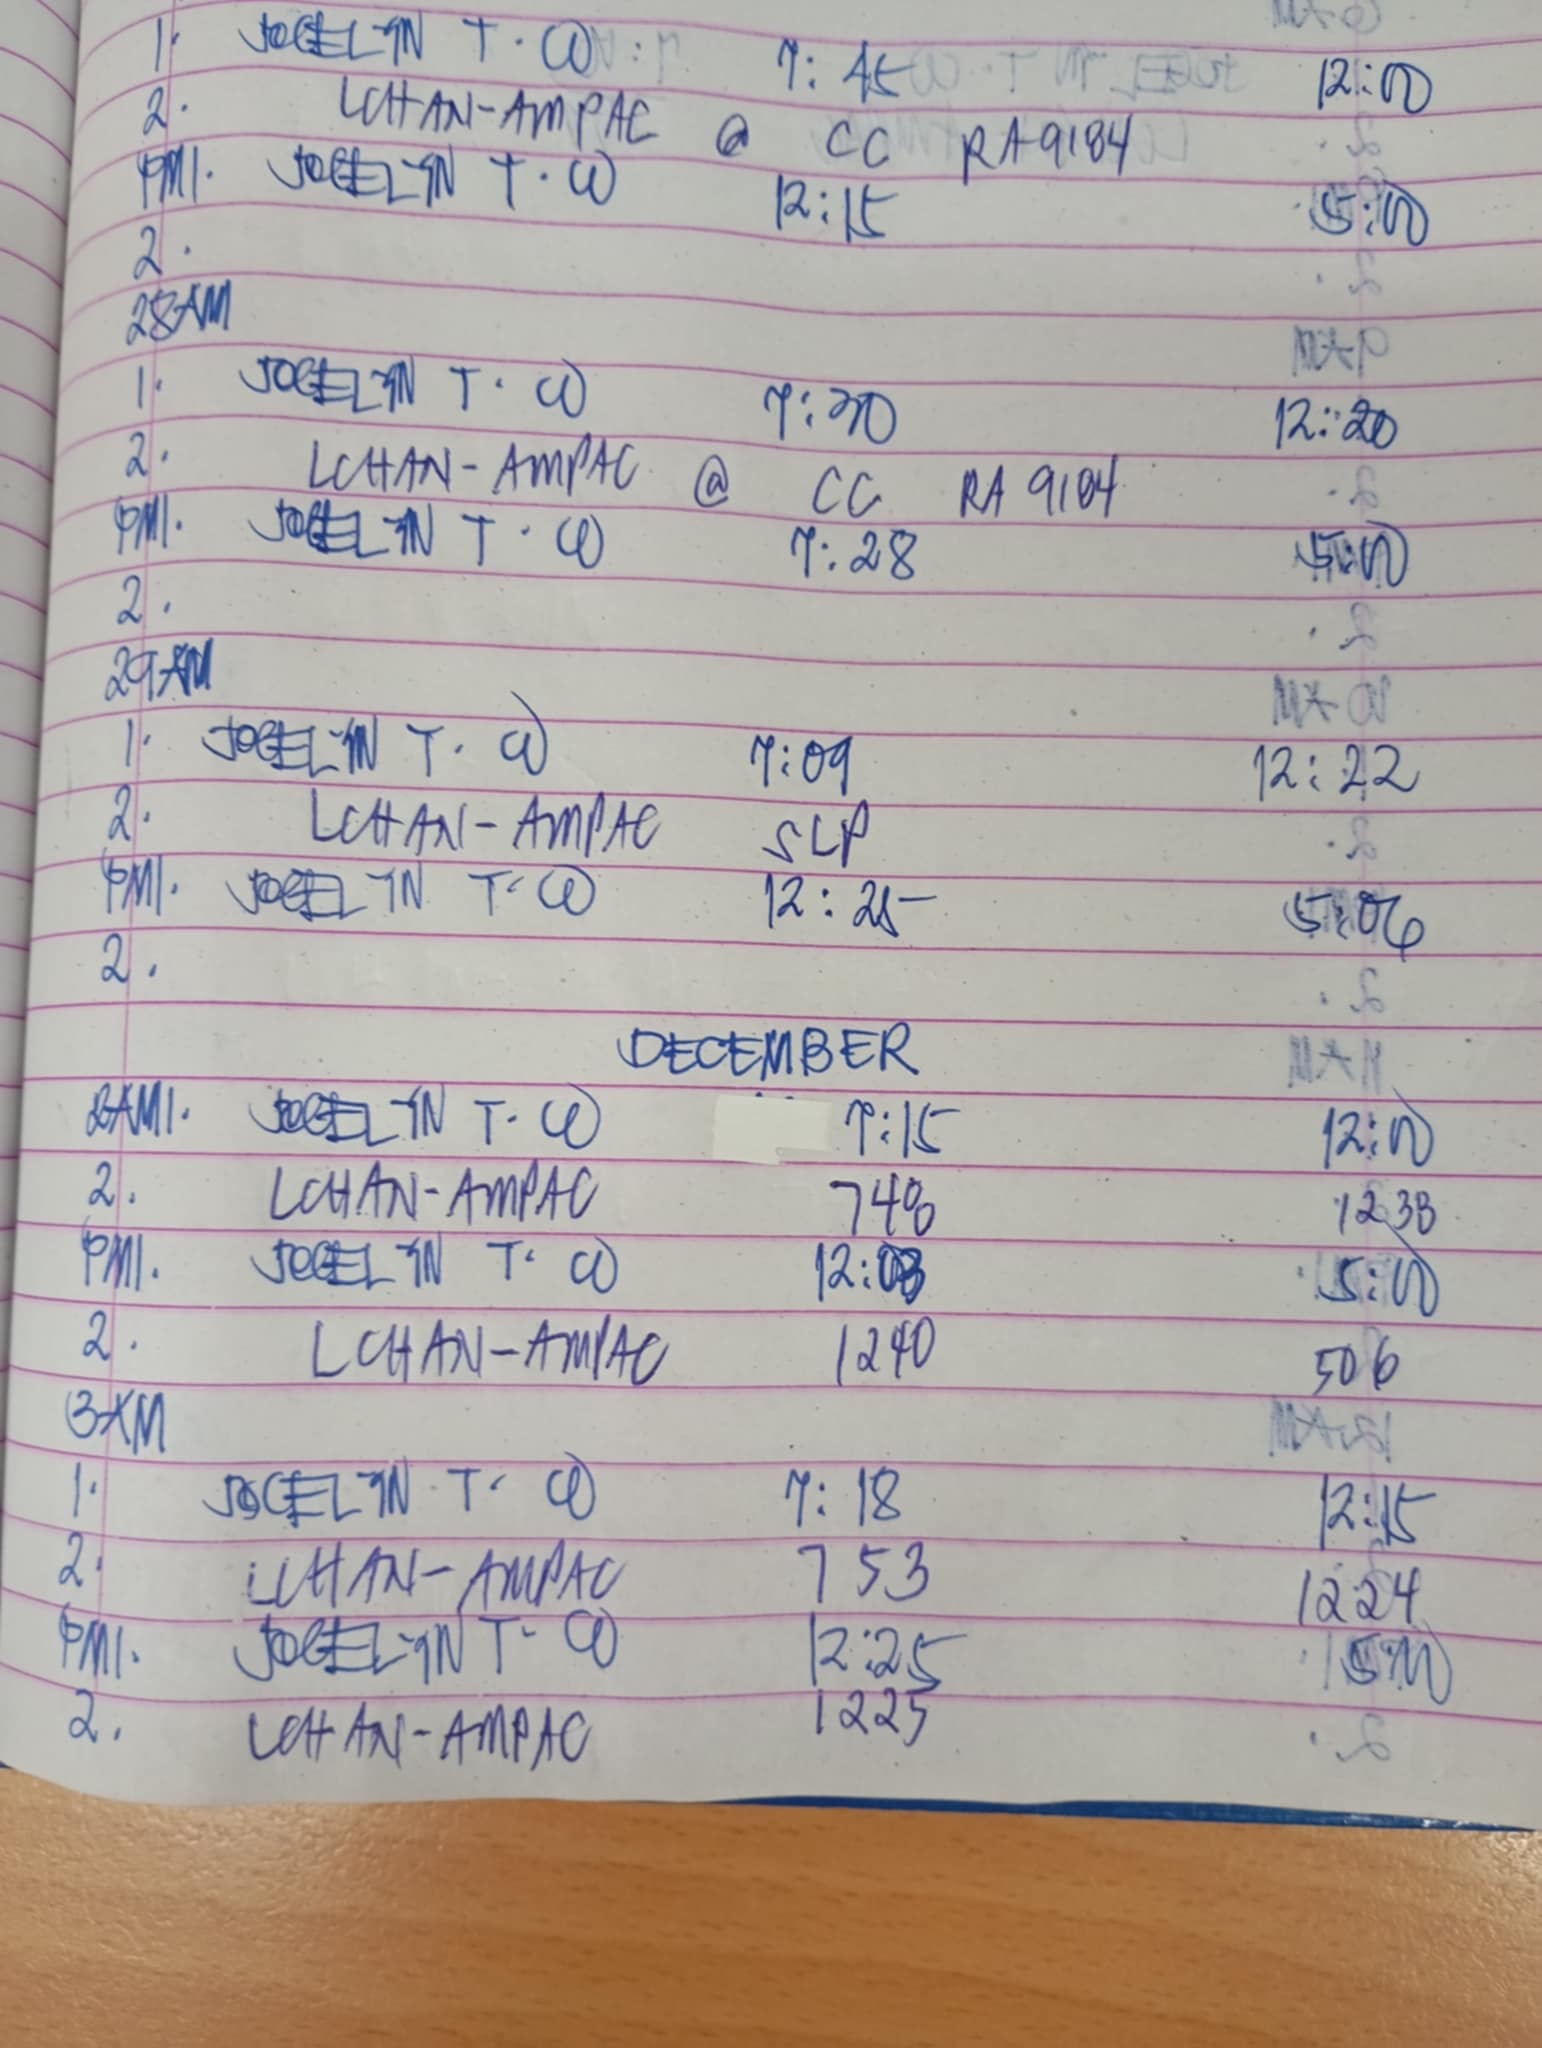 1. JOCELYN T. CO 7:45 12:00
2. LCHAN-AMPAC @ CC RA 9184
PM1. JOCELYN T. CO 12:15 5:00
2.
28AM
1. JOCELYN T. CO 7:30 12:20
2. LCHAN-AMPAC @ CC RA 9184
PM1. JOCELYN T. CO 7:28 5:00
2.
29AM
1. JOCELYN T. CO 7:09 12:22
2. LCHAN-AMPAC SLP
PM1. JOCELYN T. CO 12:25 5:06
2.
DECEMBER
2AM1. JOCELYN T. CO 7:15 12:00
2. LCHAN-AMPAC 746 1238
PM1. JOCELYN T. CO 12:03 5:00
2. LCHAN-AMPAC 1240 506
3AM
1. JOCELYN T. CO 7:18 12:15
2. LCHAN-AMPAC 753 1224
PM1. JOCELYN T. CO 12:25 5:00
2. LCHAN-AMPAC 1225